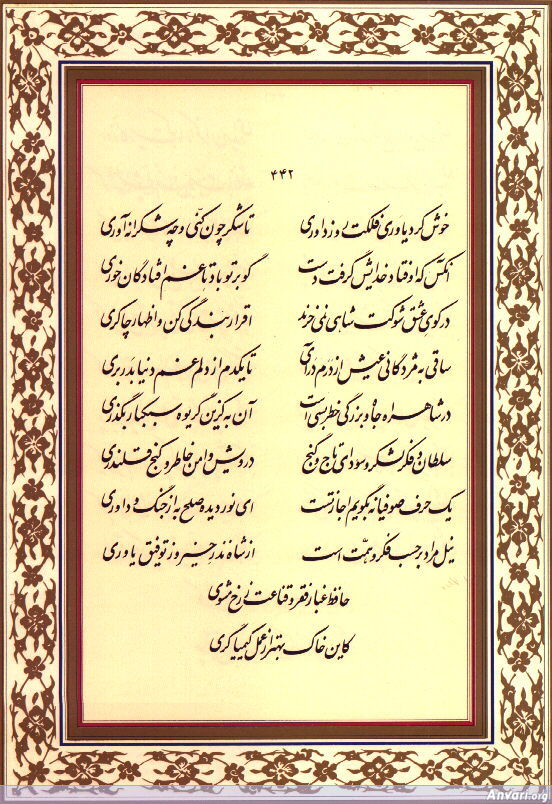 ۴۴۲
خوش کرد یاوری فلکت روز داوری تا شکر چون کنی و چه شکرانه آوری
آنکس که اوفتاد خدایش گرفت دست گو بر تو باد تا غم افتادگان خوری
در کوی عشق شوکت شاهی نمی خرند اقرار بندگی کن و اظهار چاکری
ساقی به مژدگانی عیش از درم درآی تا یکدم از دلم غم دنیا بدر بری
در شاهراه جاه و بزرگی خطر بسی است آن به کزین گریوه سبکبار بگذری
سلطان و فکر لشکر و سودای تاج و گنج درویش و امن خاطر و کنج قلندری
یک حرف صوفیانه بگویم اجازتست ای نور دیده صلح به از جنگ و داوری
نیل مراد بر حسب فکر و همّت است از شاه نذر خیر و ز توفیق یاوری
حافظ غبار فقر و قناعت ز رخ مشوی
کاین خاک بهتر از عمل کیمیاگری
Anvari.org